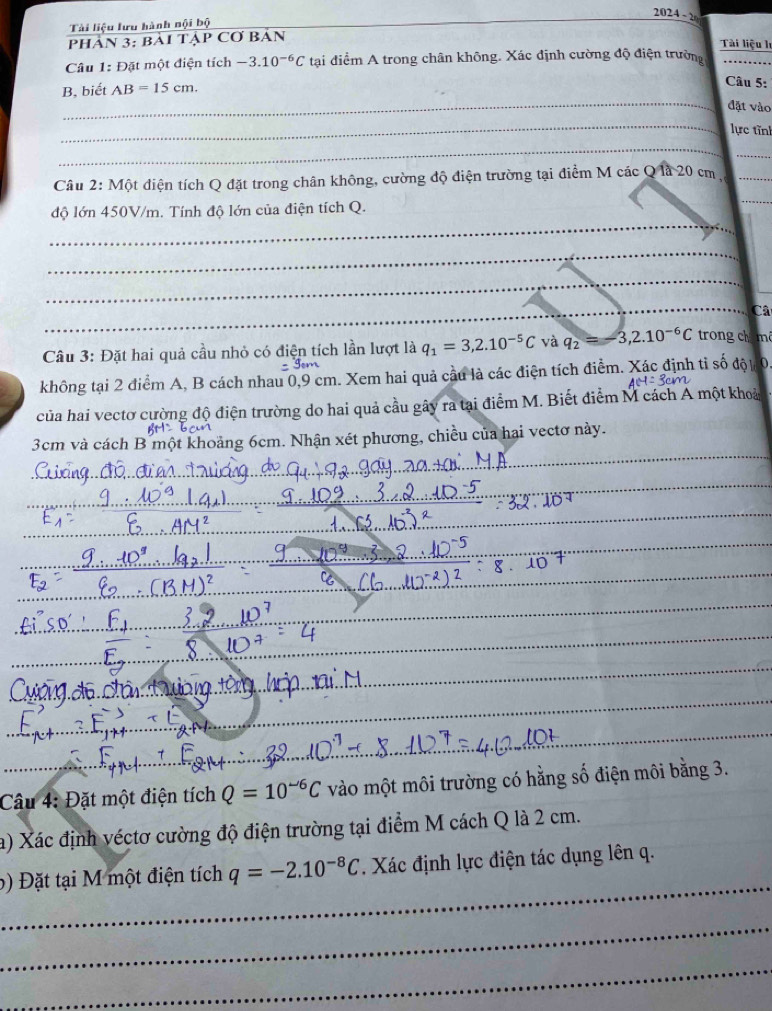 Tài liệu lưu hành nội bộ
2024 - 20
PHẦN 3: BÀI TẬP CƠ BẢN
Câu 1: Đặt một điện tích −3.10⁻⁶C tại điểm A trong chân không. Xác định cường độ điện trường
B, biết AB = 15 cm.
Câu 2: Một điện tích Q đặt trong chân không, cường độ điện trường tại điểm M các Q là 20 cm
độ lớn 450V/m. Tính độ lớn của điện tích Q.
Câu 3: Đặt hai quả cầu nhỏ có điện tích lần lượt là q₁ = 3,2.10⁻⁵C và q₂ = −3,2.10⁻⁶C trong ch
= 9cm
không tại 2 điểm A, B cách nhau 0,9 cm. Xem hai quả cầu là các điện tích điểm. Xác định tỉ số độ l
AM = 3cm
của hai vectơ cường độ điện trường do hai quả cầu gây ra tại điểm M. Biết điểm M cách A một khoả
BM = 6cm
3cm và cách B một khoảng 6cm. Nhận xét phương, chiều của hai vectơ này.
Cường độ điện trường do q₁; q₂ gây ra tại M A
E₁ = 9.10⁹ |q₁| / ε . AM² = 9.10⁹ . 3,2.10⁻⁵ / 1.(3.10⁻²)² = 32.10⁷
E₂ = 9.10⁹ . |q₂| / ε₂ . (BM)² = 9.10⁹ . 3,2.10⁻⁵ / (6.10⁻²)² = 8.10⁷
tỉ số: E₁ / E₂ = 32.10⁷ / 8.10⁷ = 4
Cường độ điện trường tổng hợp tại M
E⃗M = E⃗1M + E⃗2M
= E1M + E2M = 32.10⁷ + 8.10⁷ = 40.10⁷
Câu 4: Đặt một điện tích Q = 10⁻⁶C vào một môi trường có hằng số điện môi bằng 3.
a) Xác định véctơ cường độ điện trường tại điểm M cách Q là 2 cm.
b) Đặt tại M một điện tích q = −2.10⁻⁸C. Xác định lực điện tác dụng lên q.
TÚ NTUT
Tài liệu l
Câu 5:
đặt vào
lực tĩnh
Câ
mô
0.